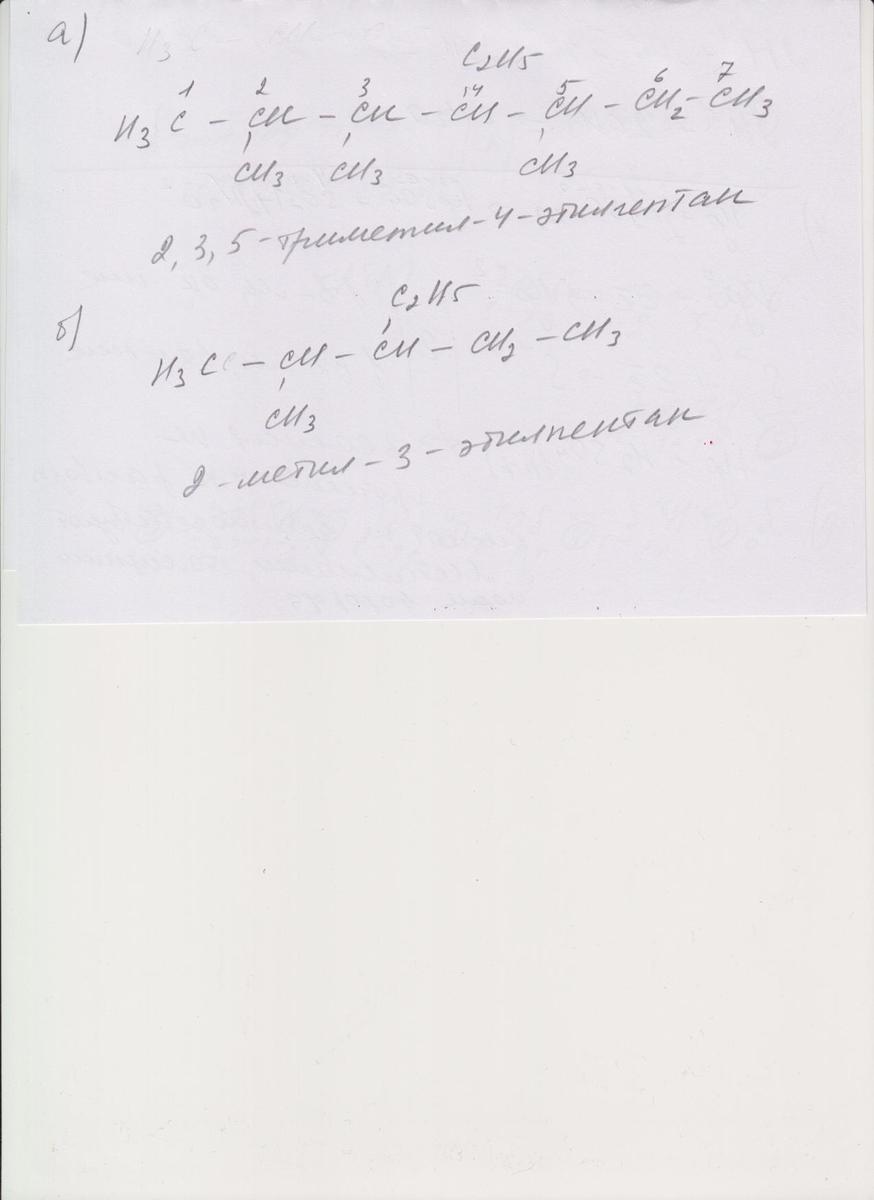 а)
C2H5
1 2 3 4 5 6 7
H3C – CH – CH – CH – CH – CH2 – CH3
CH3 CH3 CH3
2,3,5-триметил-4-этилгептан
б)
C2H5
H3C – CH – CH – CH2 – CH3
CH3
2-метил-3-этилпентан